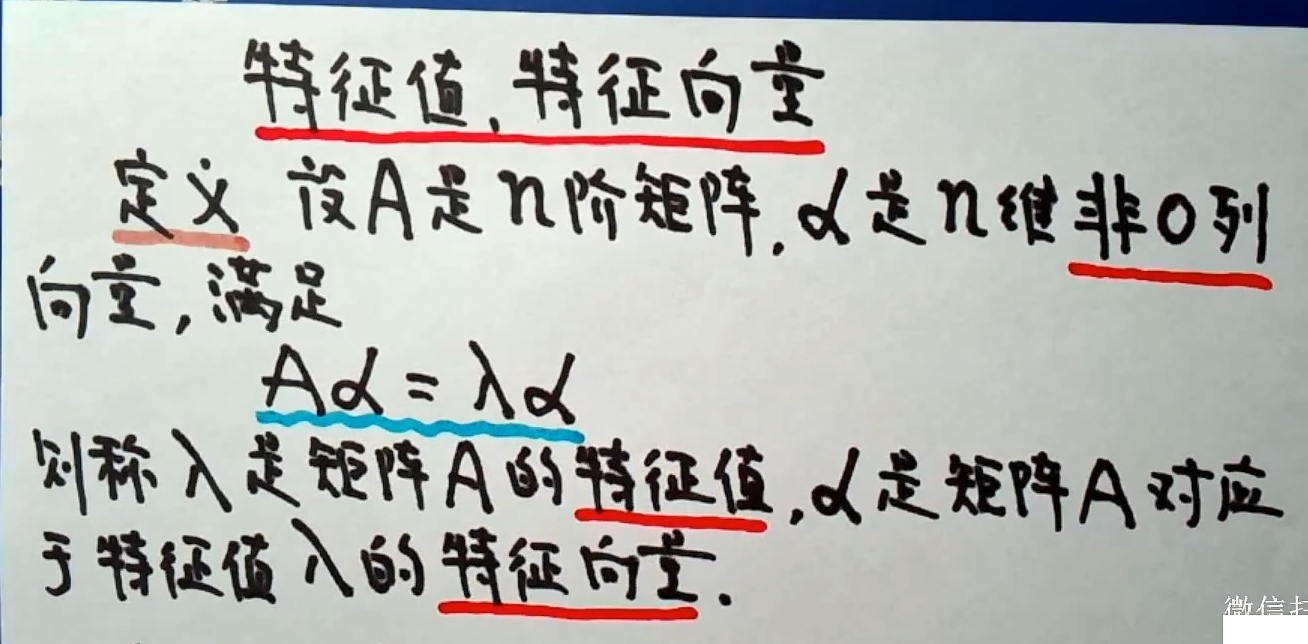 特征值,特征向量
定义 设A是n阶矩阵,α是n维非0列
向量,满足
Aα=λα
则称λ是矩阵A的特征值,α是矩阵A对应
于特征值λ的特征向量.
微信扫